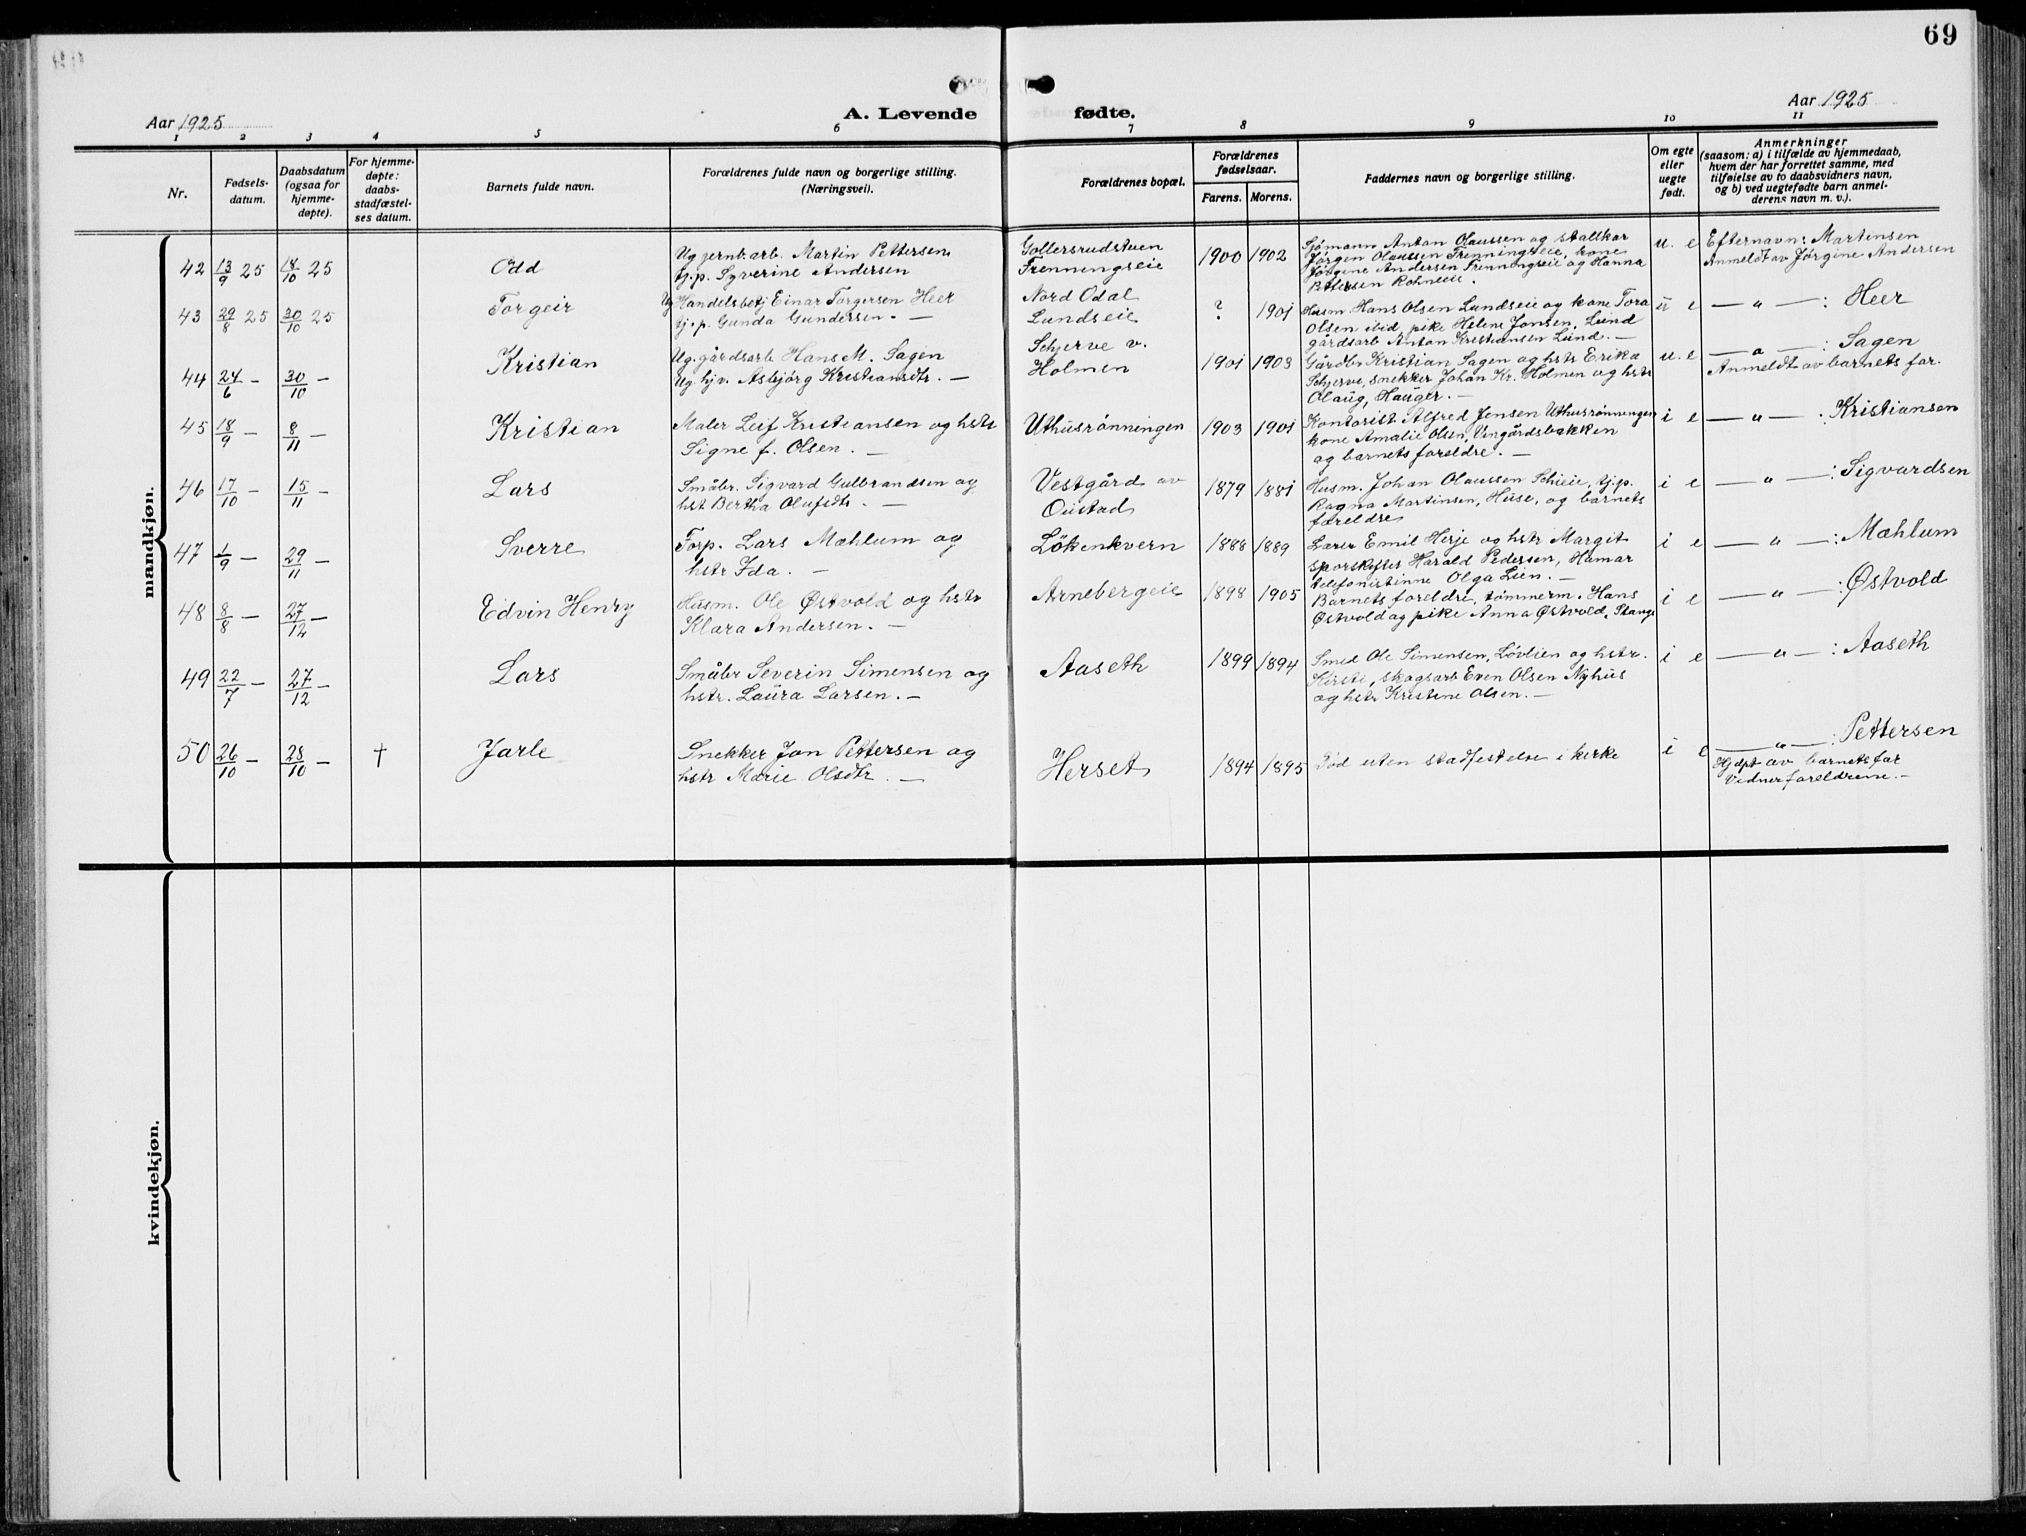 69
Aar 1925
A. Levende fødte.
Aar 1925
1 2 3 4 5 6 7 8 9 10 11
Nr.
Fødsels-
datum.
Daabsdatum
(ogsaa for
hjemme-
døpte).
For hjemme-
døpte:
daabs-
stadfæstel-
ses datum.
Barnets fulde navn.
Forældrenes fulde navn og borgerlige stilling.
(Næringsvei).
Forældrenes bopæl.
Forældrenes
fødselsaar.
Farens. Morens.
Faddernes navn og borgerlige stilling.
Om egte
eller
uegte
født.
Anmerkninger
(saasom: a) i tilfælde av hjemmedaab,
hvem der har forrettet samme, med
tilføielse av to daabsvidners navn,
og b) ved uegtefødte barn anmel-
derens navn m. v.).
mandkjøn.
42 13/9 25 18/10 25 Odd
Ug jernb.arb. Martin Pettersen
tj.p. Syverine Andersen
Gollersrudstuen
Frenningseie
1900 1902
Sjømann Anton Olaussen og stallkar
Jørgen Olaussen Frenningseie, kone
Jørgine Andersen Frenningseie og Hanna
Pettersen Rohneeie.
u. e
Efternavn: Martinsen
Anmeldt av Jørgine Andersen
43 29/8 25 30/10 25 Torgeir
Ug Handelsbetj Einar Torgersen Heer
tj.p. Gunda Gundersen. —
Nord Odal
Lundseie
? 1901
Husm. Hans Olsen Lundseie og kone Tora
Olsen ibid, pike Helene Jonsen, Lund
gårdsarb Anton Kristiansen Lund. —
u e
— " — : Heer
44 24/6 — 30/10 — Kristian
Ug. gårdsarb Hans M. Sagen
Ug hjv. Asbjørg Kristiansdtr. —
Schjerve v.
Holmen
1901 1903
Gårdbr Kristian Sagen og hstr Erika
Schjerve, snekker Johan Kr. Holmen og hstr
Olaug, Hauger. —
u. e
— " — : Sagen
Anmeldt av barnets far.
45 18/9 — 8/11 — Kristian
Maler Leif Kristiansen og hstr
Signe f. Olsen. —
Uthusrønningen
1903 1901
Kontorist Alfred Jensen Uthusrønningen
kone Amalie Olsen, Vingårdsbakken
og barnets foreldre. —
i e
— " — : Kristiansen
46 17/10 — 15/11 — Lars
Småbr. Sigvard Gulbrandsen og
hst Bertha Olufsdtr. —
Vestgård av
Oustad
1879 1881
Husm. Johan Olaussen Schieie, tj.p.
Ragna Martinsen, Huse, og barnets
foreldre
i e
— " — : Sigvardsen
47 1/9 — 29/11 — Sverre
Forp. Lars Mæhlum og
hstr Ida. —
Løkenkvern
1888 1889
Lærer Emil Herje og hstr Margit
sporskifter Harald Pedersen, Hamar
telefonistinne Olga Lien. —
i e
— " — : Mæhlum
48 8/8 — 27/12 — Edvin Henry
Husm. Ole Østvold og hstr
Klara Andersen. —
Arnebergeie
1898 1905
Barnets foreldre, tømmerm. Hans
Østvold og pike Anna Østvold, Stange
i e
— " — : Østvold
49 22/7 — 27/12 — Lars
Småbr Severin Simensen og
hstr. Laura Larsen. —
Aaseth
1899 1894
Smed Ole Simensen, Løvlien og hstr.
Kirsti, skogsarb Even Olsen Nyhus
og hstr Kristine Olsen. —
i e
— " — : Aaseth
50 26/10 — 28/10 — † Jarle
Snekker Jon Pettersen og
hstr Marie Olsdtr. —
Herset
1894 1895
Død uten stadfestelse i kirke
i e
— " — : Pettersen
Hjdpt av barnets far
Vidner foreldrene. —
kvindekjøn.